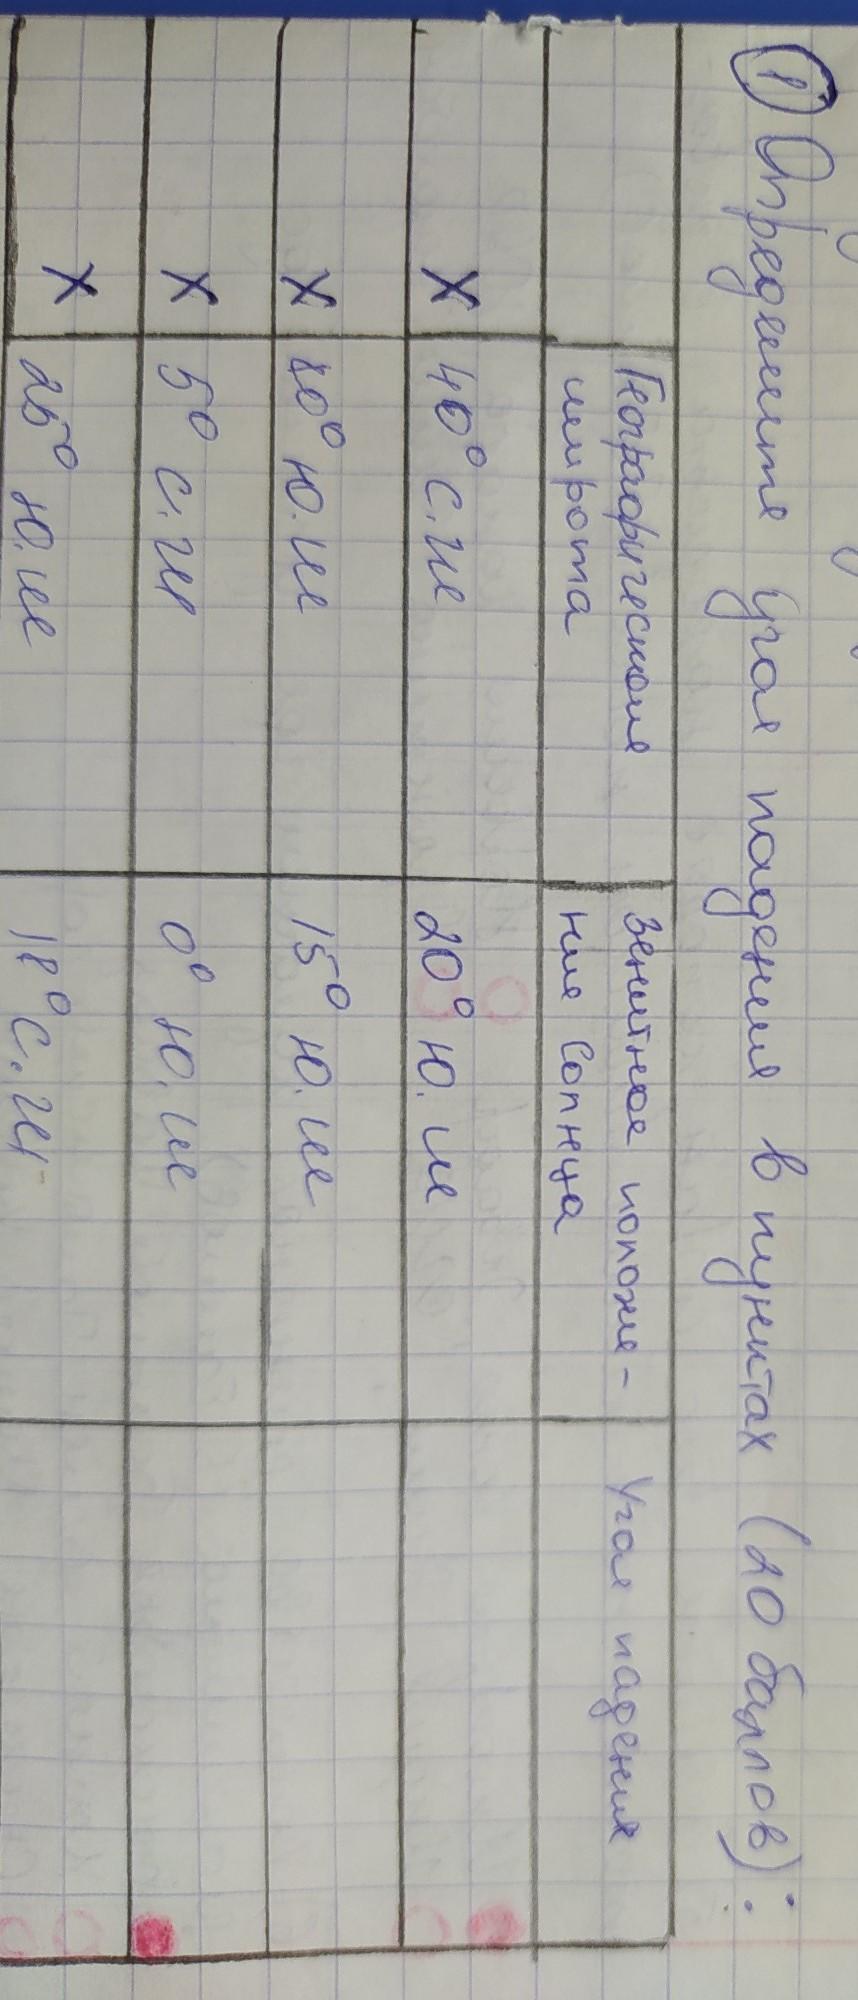 ① Определите угол падения в пунктах (20 баллов):
Географическая широта
Зенитное положе-
ние Солнца
Угол падения
X 40° с.ш 20° ю.ш
X ю.ш 15° ю.ш
X 5° с.ш 0° ю.ш
X 25° ю.ш 18° с.ш